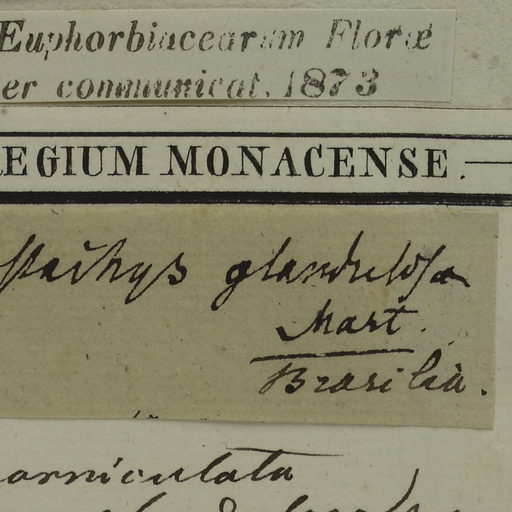 Euphorbiacearum Floræ
er communicat. 1873
EGIUM MONACENSE.
stachys glandulosa
Mart.
Brasilia.
orniculata